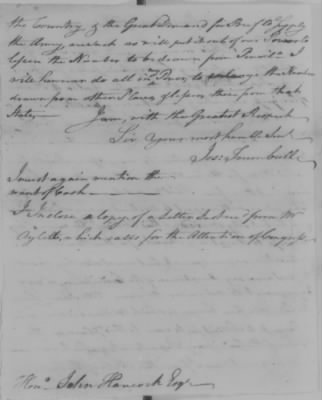 the Country & the Great demand for Beef to Supply
the Army, are such as will put it out of our Power to
lessen the Number to be drawn from Pensilva. I
will however do all in my Power, to enlarge the Number
drawn from other Places, & lessen those from that
State,
I am, with the Greatest Respect
Sir Your most humb Servt
Jos: Trumbull
I must again mention the
want of Cash
I Inclose a Copy of a Letter Just recd from Mr
Aylett, which calls for the Attention of Congress
Honl. John Hancock Esqr